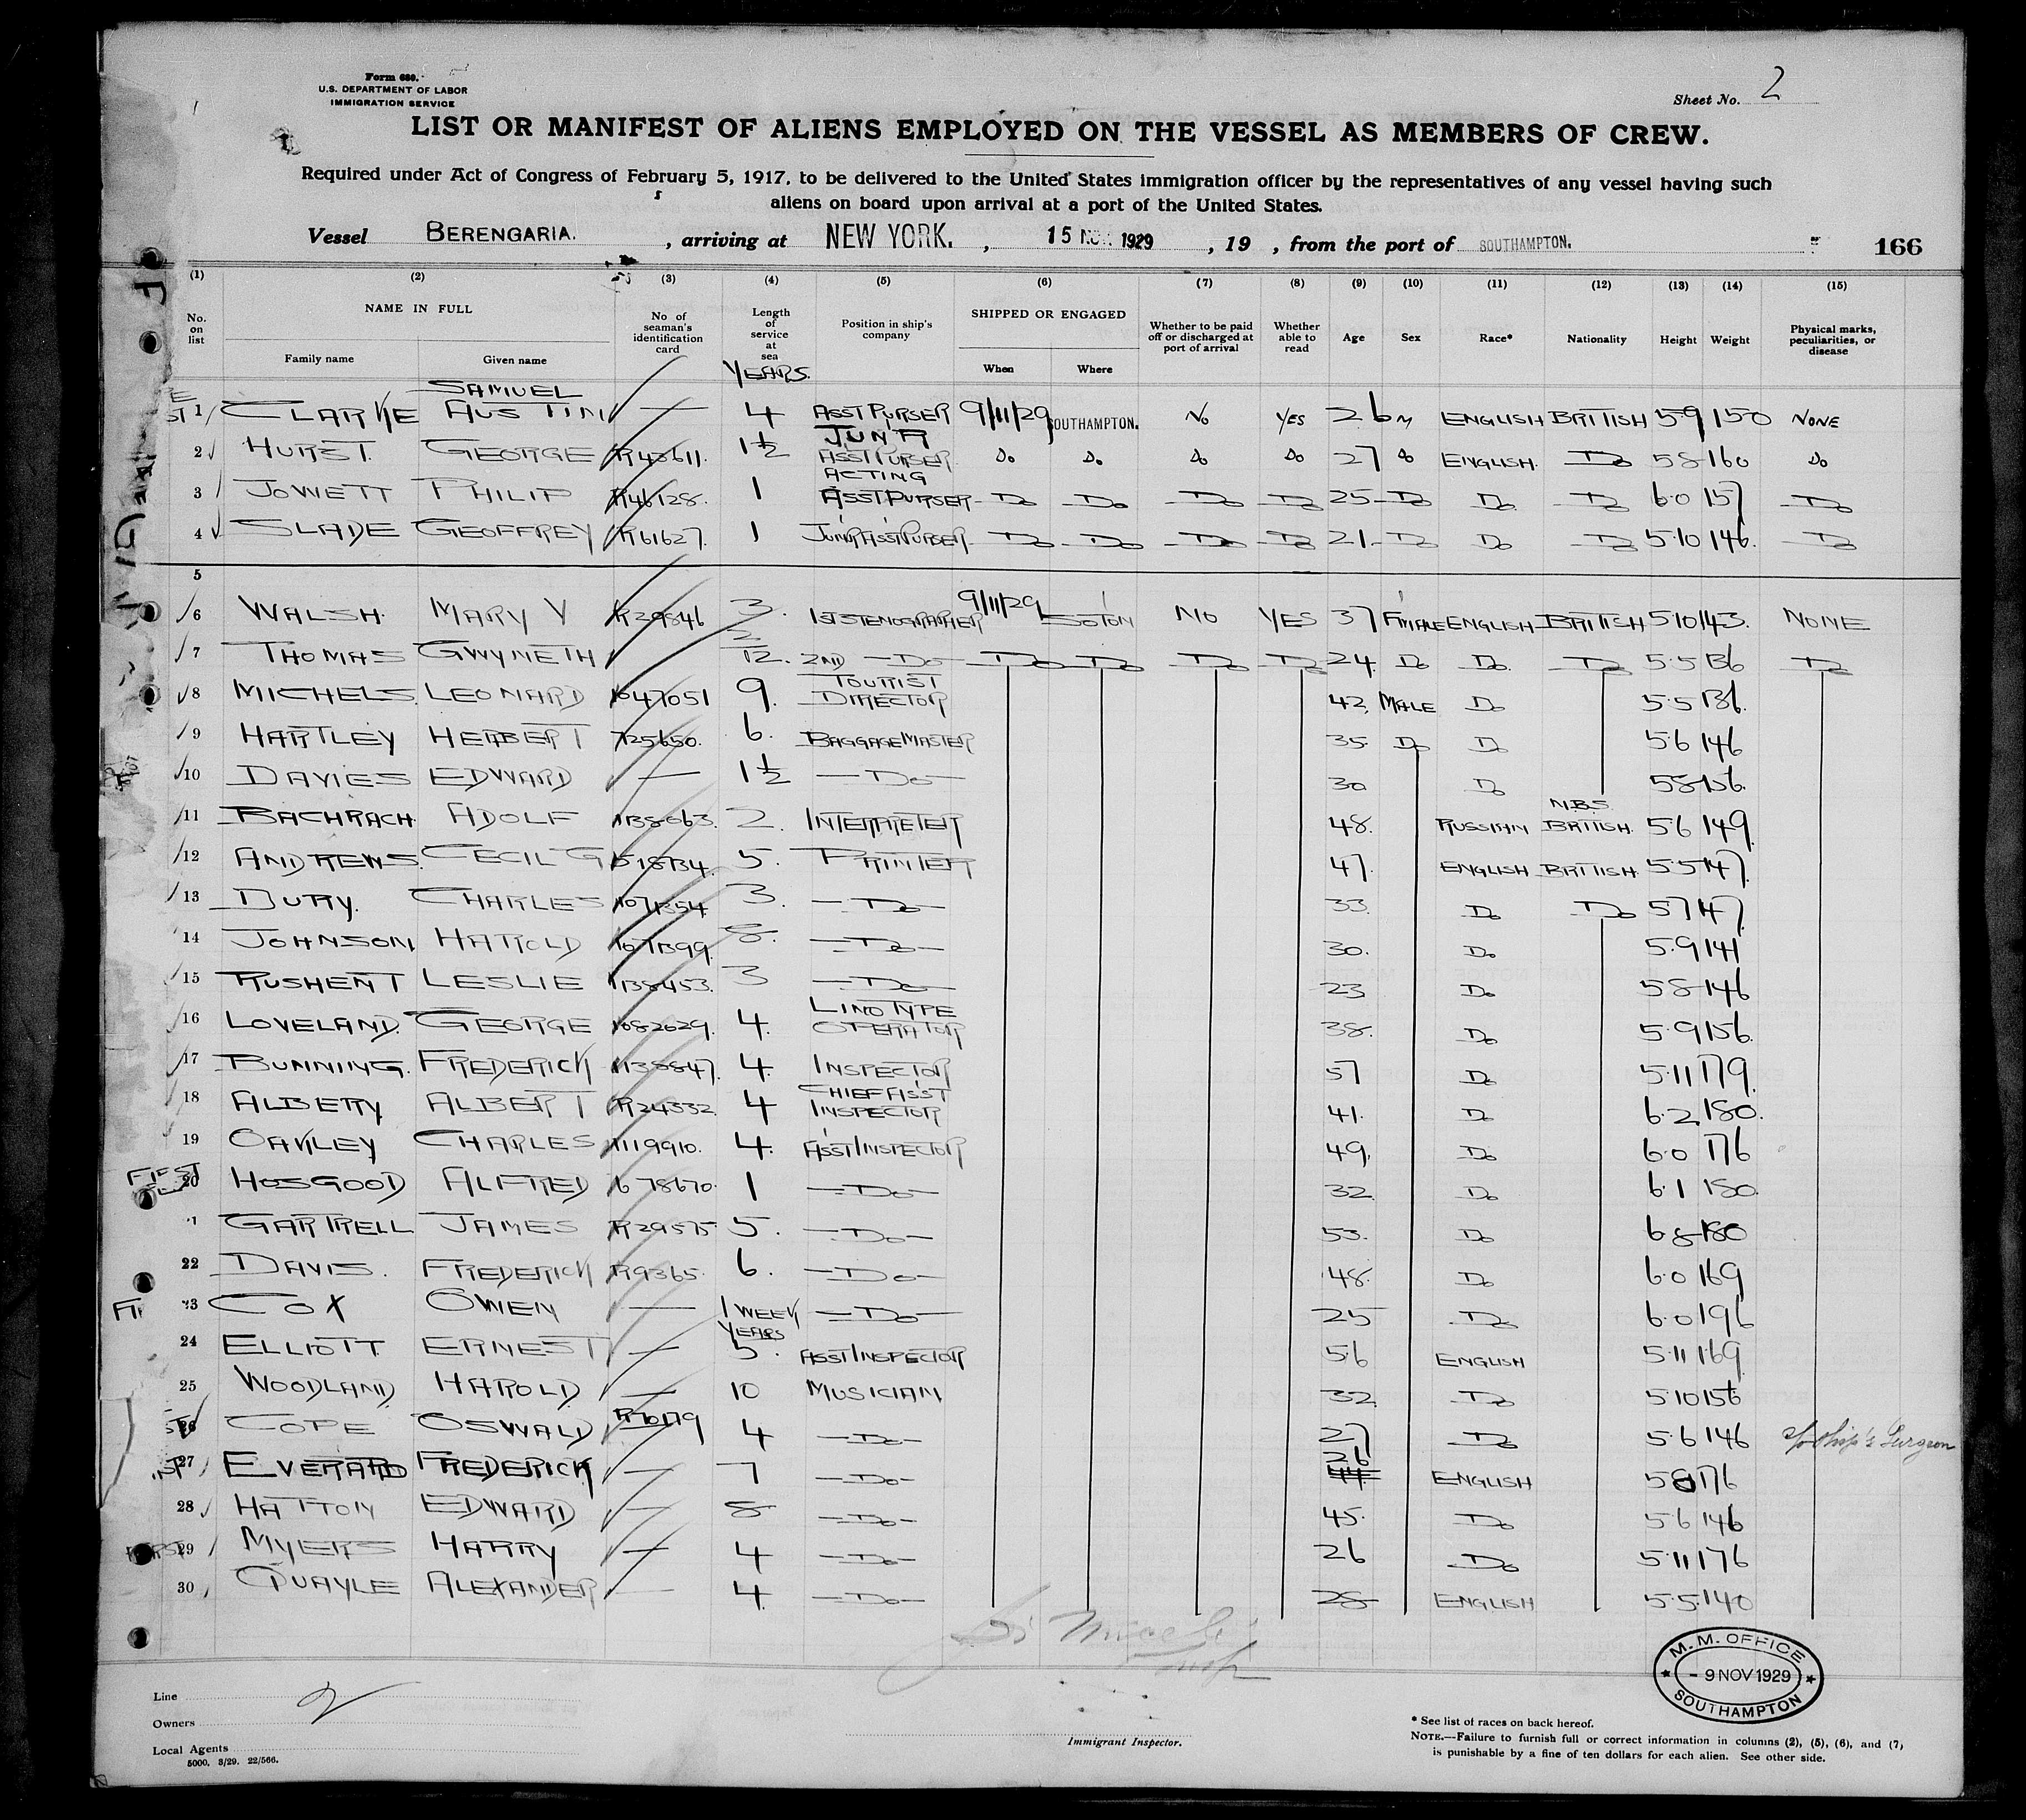 Form 680.
U.S. DEPARTMENT OF LABOR
IMMIGRATION SERVICE
Sheet No. 2
LIST OR MANIFEST OF ALIENS EMPLOYED ON THE VESSEL AS MEMBERS OF CREW.
Required under Act of Congress of February 5, 1917, to be delivered to the United States immigration officer by the representatives of any vessel having such
aliens on board upon arrival at a port of the United States.
Vessel BERENGARIA. , arriving at NEW YORK. , 15 NOV. 1929 , 19 , from the port of SOUTHAMPTON. 166
(1) (2) (3) (4) (5) (6) (7) (8) (9) (10) (11) (12) (13) (14) (15)
No. on list NAME IN FULL Family name Given name No of seaman's identification card Length of service at sea YEARS. Position in ship's company SHIPPED OR ENGAGED When Where Whether to be paid off or discharged at port of arrival Whether able to read Age Sex Race* Nationality Height Weight Physical marks, peculiarities, or disease
1 CLARKE SAMUEL AUSTIN — 4 ASST PURSER 9/11/29 SOUTHAMPTON. NO YES 26 M ENGLISH BRITISH 5·9 150 NONE
2 HURST. GEORGE R43611. 1½ JUN'R ASST PURSER Do Do Do Do 27 Do ENGLISH. Do 5·8 160 Do
3 JOWETT PHILIP R46128. 1 ACTING ASST PURSER Do Do Do Do 25 Do Do Do 6·0 157 Do
4 SLADE GEOFFREY R61627. 1 JUNR ASST PURSER Do Do Do Do 21 Do Do Do 5·10 146. Do
5
6 WALSH. MARY V R29846 3. 1ST STENOGRAPHER 9/11/29 SOTON NO YES 37 FMALE ENGLISH BRITISH 5·10 143. NONE
7 THOMAS GWYNETH 2/12. 2ND Do Do Do Do Do 24. Do Do. Do 5·5 136 Do
8 MICHELS. LEONARD 1047051 9. TOURIST DIRECTOR 42, MALE Do 5·5 136.
9 HARTLEY HERBERT 725650. 6. BAGGAGE MASTER 35. Do Do 5·6 146
10 DAVIES EDWARD — 1½ Do 30 Do 5·8 156.
11 BACHRACH. ADOLF 1138663. 2. INTERPRETER 48. RUSSIAN N.B.S. BRITISH. 5·6 149.
12 ANDREWS. CECIL G 518734. 5. PRINTER 47. ENGLISH BRITISH. 5·5 147.
13 DURY. CHARLES 1071354 3. Do 33. Do Do 5·7 147.
14 JOHNSON. HAROLD 1071399. 8. Do 30. Do 5·9 141
15 RUSHENT LESLIE 1138453. 3 Do 23 Do 5·8 146
16 LOVELAND. GEORGE 1082629. 4. LINOTYPE OPERATOR 38. Do 5·9 156.
17 BUNNING. FREDERICK 1138847. 4. INSPECTOR 57 Do 5·11 179.
18 ALBERRY ALBERT R24332. 4 CHIEF ASST INSPECTOR 41. Do 6·2 180.
19 OAKLEY CHARLES 1119910. 4. ASST INSPECTOR 49. Do 6·0 176
FIRST 20 HOSGOOD ALFRED 678670. 1 Do 32. Do 6·1 180.
GARTRELL JAMES R29575 5. Do 53. Do 180
22 DAVIS. FREDERICK R9365. 6. Do 48. Do 6·0 169
COX OWEN — 1 WEEK Do 25 Do 6·0 196
24 ELLIOTT ERNEST — YEARS 5. ASST INSPECTOR 56 ENGLISH 5·11 169.
25 WOODLAND HAROLD — 10 MUSICIAN 32. Do 5·10 156
26 COPE OSWALD R70179 4 Do 27 Do 5·6 146 Ship's Surgeon
27 EVERARD FREDERICK — 7 Do 26 44 ENGLISH 5·8 176
28 HATTON EDWARD — 8 Do 45. Do 5·6 146
29 MYERS HARRY — 4 Do 26 Do 5·11 176
30 QUAYLE ALEXANDER — 4. Do 28 ENGLISH 5·5 140
M. M. OFFICE
- 9 NOV 1929
SOUTHAMPTON
Line
Owners
Local Agents
5000. 3/29. 22/566.
Immigrant Inspector.
* See list of races on back hereof.
NOTE.—Failure to furnish full or correct information in columns (2), (5), (6), and (7)
is punishable by a fine of ten dollars for each alien. See other side.